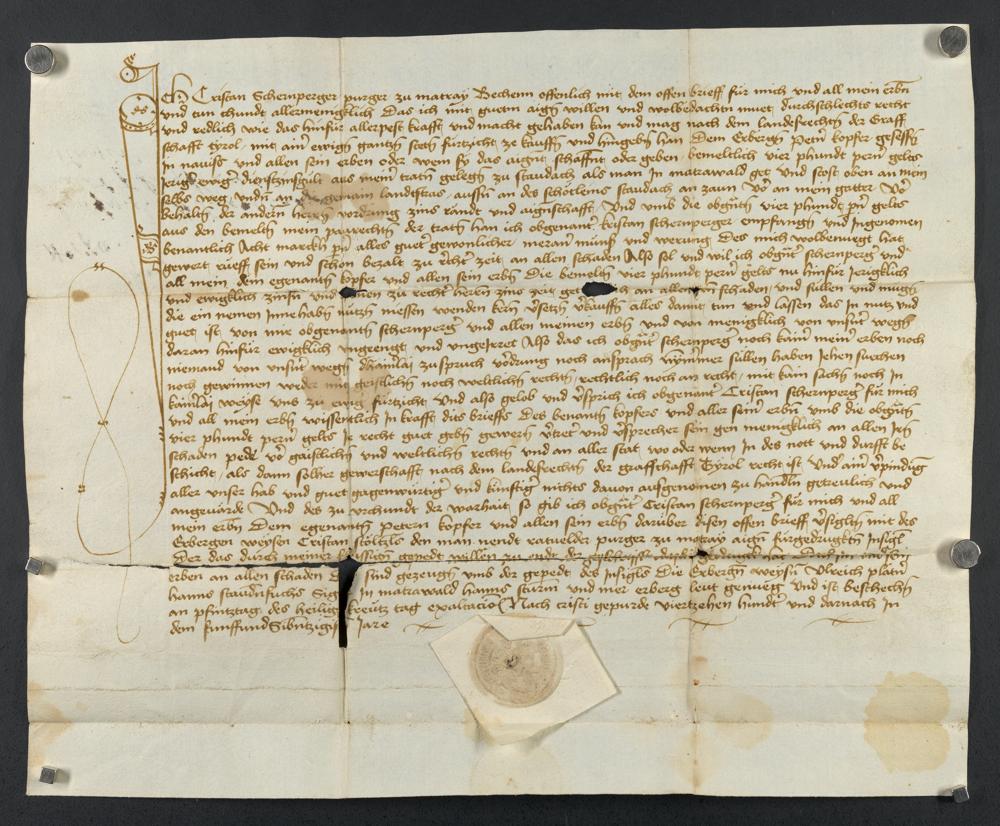 Ich Cristan Schernperger purger zu matray Bechenn offenlich mit dem offen brieff für mich und all mein erbn
und tun chundt allermenigklich Das ich mit guetm aigñ willen und wolbedachtm muet durchschlechts recht
und redlich wie das hinfür allerpest krafft und macht gehaben kan und mag nach dem landsrechtñ der Graff
schafft tyrol mit aim ewigñ gantzñ stetñ fürtzicht ze kauffñ und hingebñ han Dem Erbergñ Petern kopfer gesessñ
in navisß und allen sein erben oder wem sy das aigñt schaffent oder geben bemeltlich vier phundt perñ gelts
Jerigs ewigs dienstzinsgült aus meinñ tratñ gelegñ zu staudach als man In matrawald get und stost oben an mein
selbs weg undñ an die gemain landstras aussñ an des schötleins staudach an zaun an mein gatter
behaltñ der andern herrñ vordrung zins rändt und aignschafft Und umb die obgñtñ vier phundt pñ gelts
aus den bemeltñ mein paurechtñ der tratñ han ich obgenant kristan schernperger empfangñ und Ingenomen
benantlich Acht marckh pñ alles guetñ gewonlicher meraner münß und werung Des mich wolbenuegt hat
gewert rueff sein und schon bezalt zu rechtñ zeit an allen schaden Also sol und wil ich obgñt schernperg und
all mein dem egenantñ kopfer und allen sein erbñ die bemeltñ vier phundt pernñ gelts nu hinfür Jerigklich
und ewigklich zinsñ und zu rechtñ herrñ zins zeit an allen schaden und süllen und mugñ
die ein nemen Innehabñ nutzñ niessen wenden kern vsetzñ vkauffñ alles damit tun und lassen das In nutz und
guet ist von mir obgenantñ schernperg und allen meinen erbñ und von menigklich von unsñ wegñ
daran hinfür ewigklich ungeengt und ungeJrret Also das ich obgñt schernperg noch kainñ mein erben noch
niemand von unsñ wegñ dhainlai zuspruch vodrung noch ansprach nymmer süllen haben Jehen suechen
noch gewinnen weder mit geistlichñ noch weltlichñ rechtñ rechtlich noch an recht mit kain sachñ noch In
kainlai weyse unß zu ewigñ fürtzicht Und also gelob und vsprich ich obgenant Cristan schernperg für mich
und all mein erbñ wissentlich In krafft dits brieffs Des benantñ kopfers und aller sein erbñ umb die obgñtñ
vier phundt pern gelts Jr recht guet gebñ gewern vtret und vsprecher sein gen menigklich an allen Jrñ
schaden pede vor gaistlichñ und weltlichñ rechtñ und an aller stat wo oder wenn In des nott und durfft be
schicht als dann solher gewerschafft nach dem landsrechtñ der graffschafft Tyrol recht ist Und aim vpindug
aller unser hab und guet gagenwürtigñ und künftigñ nichts davon ausgenomen zu handln getreulich und
angeuärde Und des zu urchundt der warhait so gib ich obgñt Cristan schernperg für mich und all
mein erbñ Dem egenantñ petern kopfer und allen sein erbñ darüber disen offen brieff vsigltñ mit des
Erbergen weysen Cristan stöltzls den man nendt vatuelder purger zu matray aign fürgedrugktñ Insigl
Der das durch meiner vlissigñ gepedt willen zu endt der
erben an allen schaden Des sind gezeugñ umb der gepedt des Insigls Die Erbergñ weysñ Ulreich platñ
hanns staudnfuchs In matrawald hanns sturm und mer erberg leut genueg Und ist Beschechñ
an phintztag des heiligñ kreutz tag exaltacio Nach cristi gepurde viertzehen hundt und darnach In
dem funffundSibntzigistñ Jare